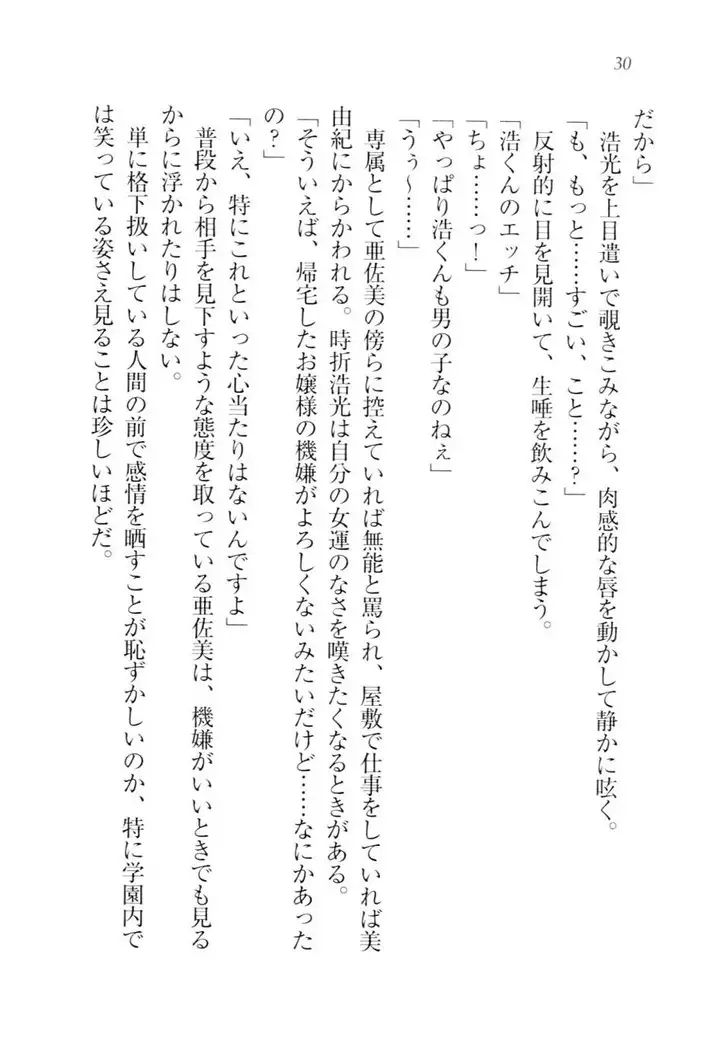 30
だから」
　浩光を上目遣いで覗きこみながら、肉感的な唇を動かして静かに呟く。
「も、もっと……すごい、こと……？」
　反射的に目を見開いて、生唾を飲みこんでしまう。
「浩くんのエッチ」
「ちょ……っ！」
「やっぱり浩くんも男の子なのねぇ」
「うぅ～……」
　専属として亜佐美の傍らに控えていれば無能と罵られ、屋敷で仕事をしていれば美
由紀にからかわれる。時折浩光は自分の女運のなさを嘆きたくなるときがある。
「そういえば、帰宅したお嬢様の機嫌がよろしくないみたいだけど……なにかあった
の？」
「いえ、特にこれといった心当たりはないんですよ」
　普段から相手を見下すような態度を取っている亜佐美は、機嫌がいいときでも見る
からに浮かれたりはしない。
　単に格下扱いしている人間の前で感情を晒すことが恥ずかしいのか、特に学園内で
は笑っている姿さえ見ることは珍しいほどだ。